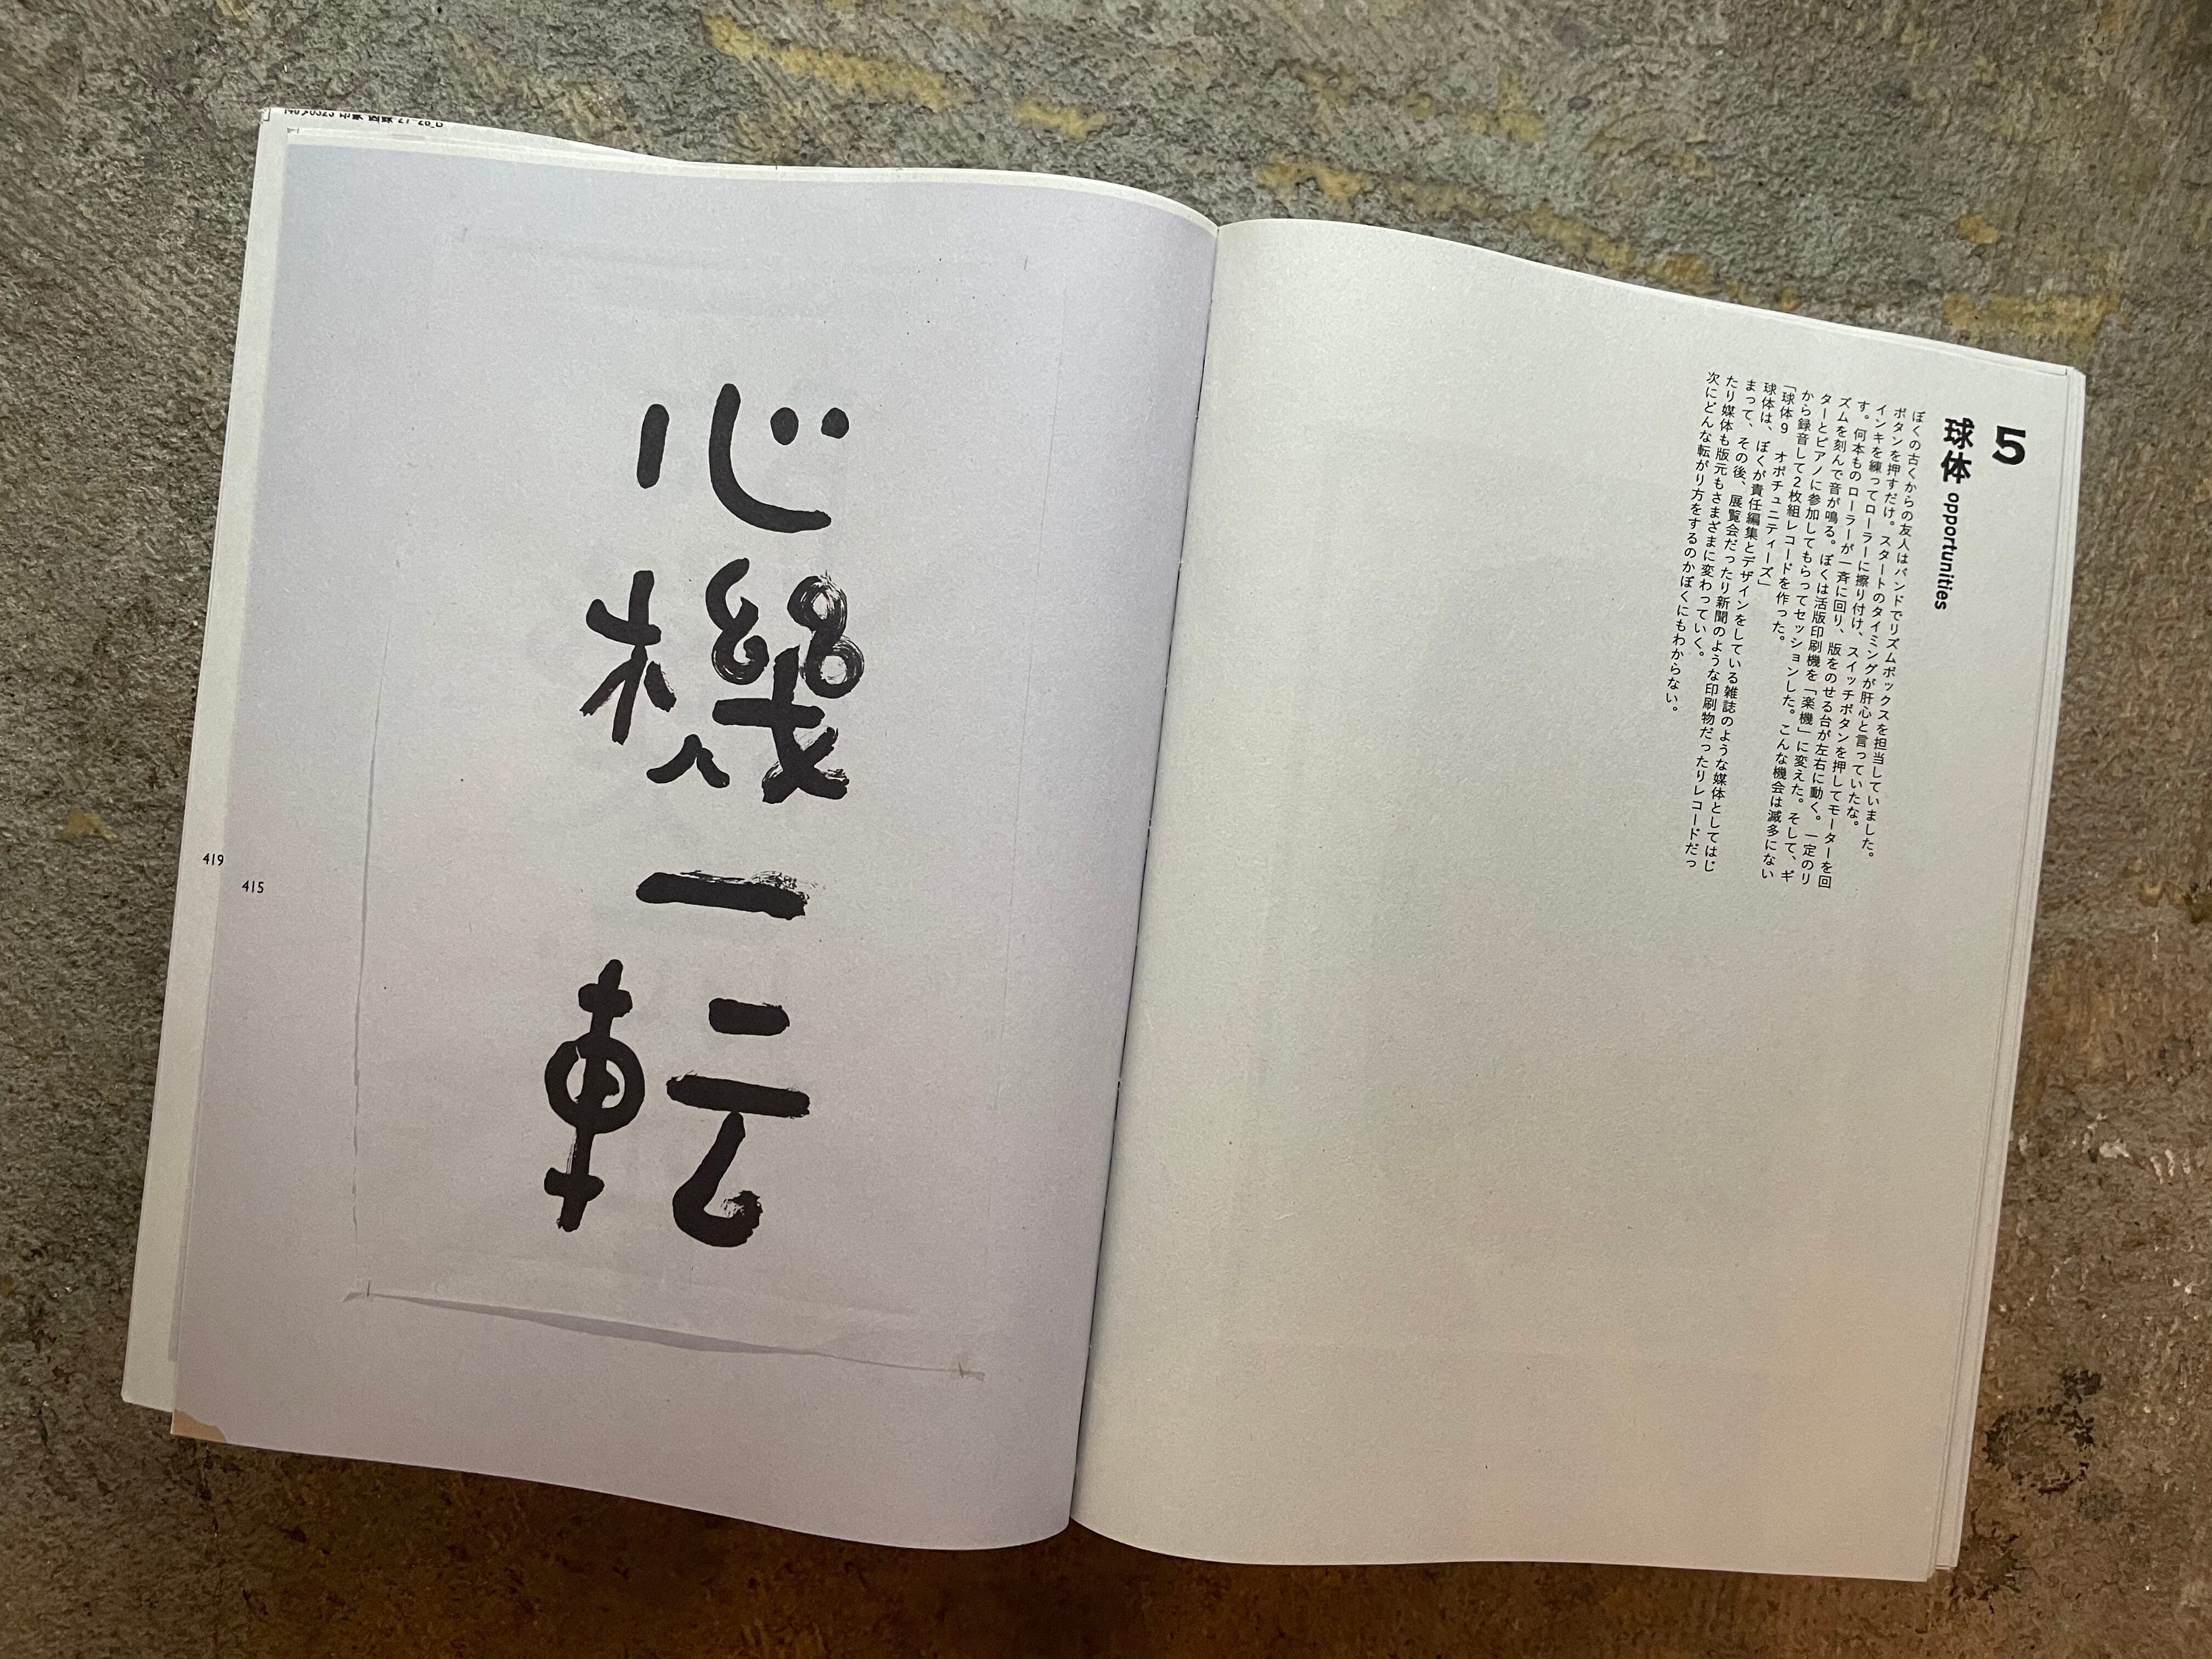 5
球体 opportunities
ぼくの古くからの友人はバンドでリズムボックスを担当していました。
ボタンを押すだけ。スタートのタイミングが肝心と言っていたな。
インキを練ってローラーに擦り付け、スイッチボタンを押してモーターを回
す。何本ものローラーが一斉に回り、版をのせる台が左右に動く。一定のリ
ズムを刻んで音が鳴る。ぼくは活版印刷機を「楽機」に変えた。そして、ギ
ターとピアノに参加してもらってセッションした。こんな機会は滅多にない
から録音して2枚組レコードを作った。
「球体9 オポチュニティーズ」
球体は、ぼくが責任編集とデザインをしている雑誌のような媒体としてはじ
まって、その後、展覧会だったり新聞のような印刷物だったりレコードだっ
たり媒体も版元もさまざまに変わっていく。
次にどんな転がり方をするのかぼくにもわからない。
心機一転
419
415